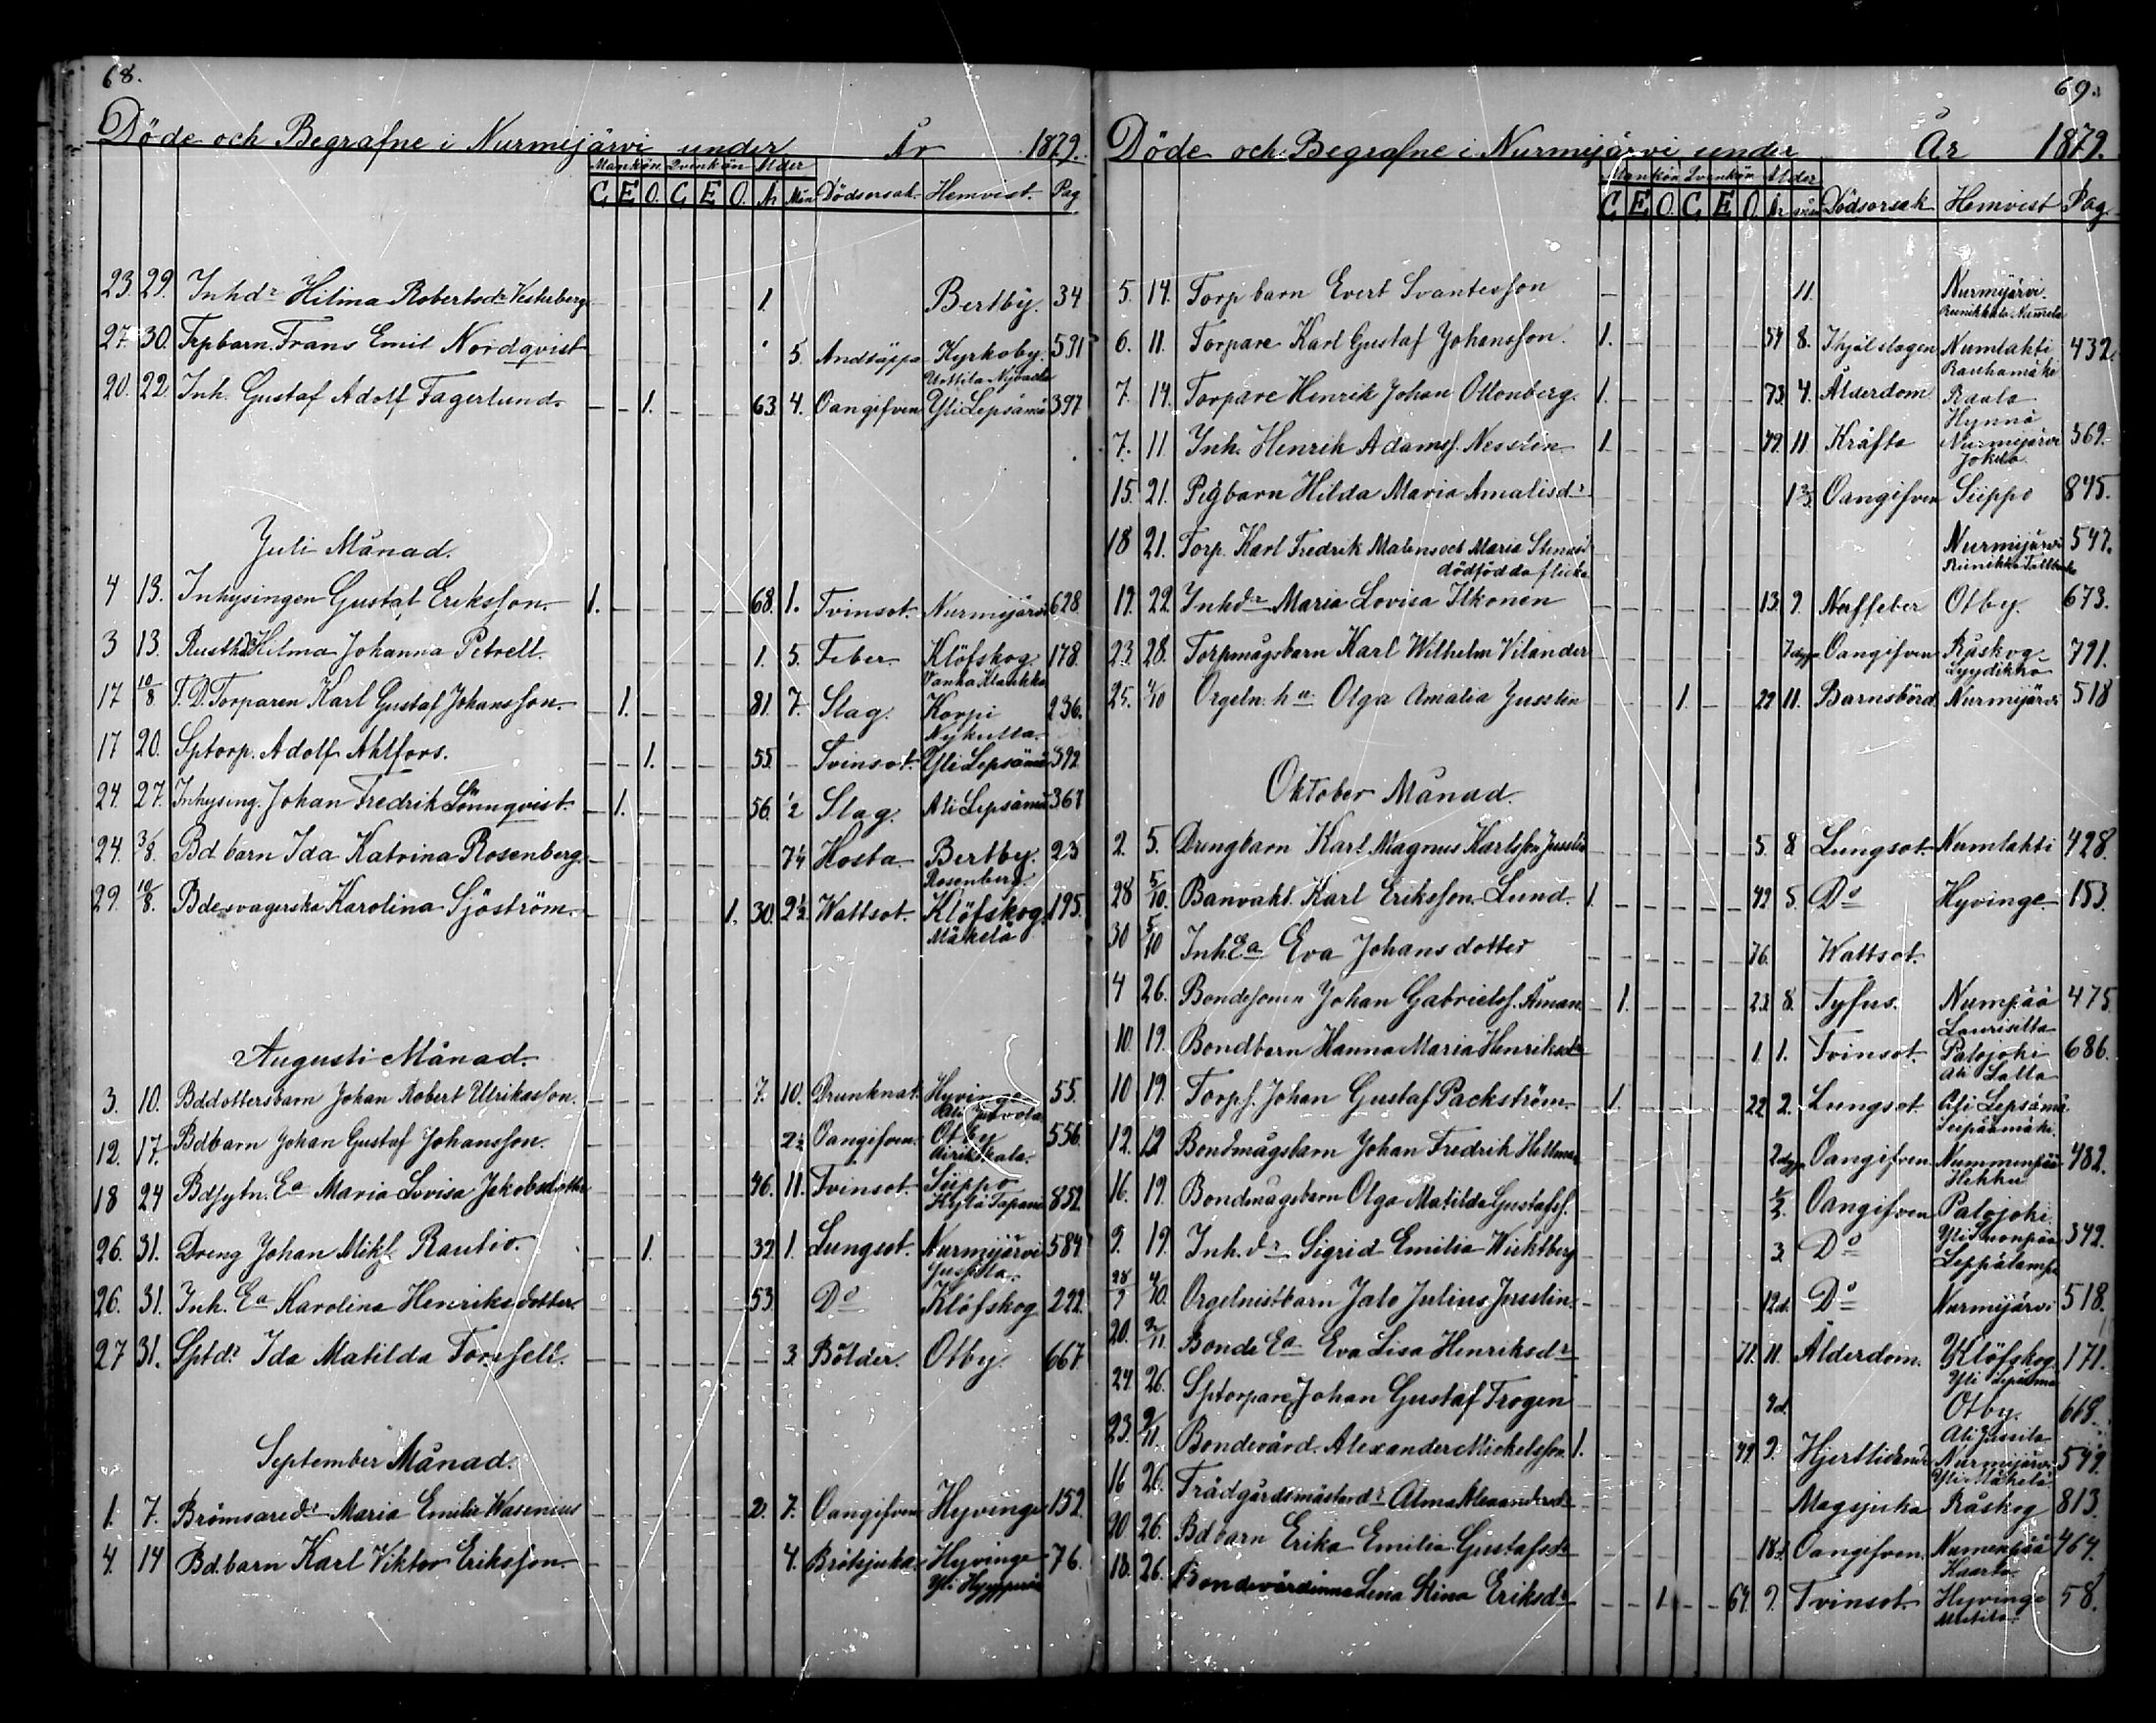 68.
Döde och Begrafne i Nurmijärvi under År 1879.
Mankön Qvinkön Ålder
C. E O. C, E O. År Mån Dödsorsak. Hemvist. Pag
23. 29. Inhdr Hilma Robertsdr Vesterberg 1. Bertby. 34
27. 30. Trpbarn Frans Emil Nordqvist 5. Andtäppa Kyrkoby. 591
Uotila Nybacka
20. 22. Inh. Gustaf Adolf Fagerlund. 1. 63. 4. Oangifven Yli Lepsämä 397
Juli Månad.
4 13. Inhysingen Gustaf Eriksson. 1. 68. 1. Tvinsot. Nurmijärvi 628
3 13. Rusthdr Hilma Johanna Petrell. 1. 5. Feber. Klöfskog. 178.
Vanha Klaukka
17 10/8 F.D. Torparen Karl Gustaf Johansson. 1. 81. 7. Slag. Korpi 236.
Nykulla.
17 20. Sptorp. Adolf Ahlfors. 1. 55. Tvinsot. Yli Lepsämä 392.
24. 27. Inhysing. Johan Fredrik Lönnqvist. 1. 56. 1/2 Slag. Ali Lepsämä 367
24. 3/8. Bd. barn Ida Katrina Rosenberg. 7 1/4 Hosta Bertby. 23
Rosenberg.
29. 10/8. Bdesvägerska Karolina Sjöström. 1. 30. 2 1/2 Wattsot. Klöfskog. 195.
Mäkelä
Augusti Månad.
3. 10. Bddottersbarn Johan Robert Ulriksson. 7. 10. Drunknat. Hyvinge 55.
12. 17. Bdbarn Johan Gustaf Johansson. 2 1/2 Oangifven. Otby 556.
Airikkala.
18 24 Bdsytn. Ea Maria Lovisa Jakobsdotter 46. 11. Tvinsot. Siippo 852.
Kylä Tapani
26. 31. Dreng Johan Mikls Rautio. 1. 32. 1. Lungsot. Nurmijärvi 584
Jussila.
26. 31. Inh. Ea Karolina Henriksdotter. 53. Do Klöfskog 222.
27 31. Sptdr Ida Matilda Forssell. 3. Bölder. Otby. 667
September Månad.
1. 7. Bromsaredr Maria Emilie Wasenius 2. 7. Oangifven Hyvinge 152
4. 14 Bd. barn Karl Viktor Eriksson 4. Bröstsjuka Hyvinge 76.
Yli Hyypperä
69.
Döde och Begrafne i Nurmijärvi under År 1879.
Mankön Qvinkön Ålder
C, E O. C, E O, År mån Dödsorsak Hemvist Pag.
5. 14. Torpbarn Evert Svantesson 11. Nurmijärvi.
6. 11. Torpare Karl Gustaf Johansson. 1. 54 8. Ihjälslagen Numlahti 432.
Rauhamäki
7. 14. Torpare Henrik Johan Ottonberg. 1. 73. 4. Ålderdom Raala
Hynnä
7. 11 Inh. Henrik Adamss. Nesslin 1. 49. 11. Kräfta Nurmijärvi 369.
Jokela.
15. 21. Pigbarn Hilda Maria Amalisdr 1 2/3 Oangifven Siippo 845.
18 21. Torp. Karl Fredrik Malens och Maria Stinas Nurmijärvi 547.
dödfödda flicka
19. 22. Inhdr Maria Lovisa Ilkonen 13. 9. Nerffeber Otby. 673.
23. 28. Torpmågsbarn Karl Wilhelm Vilander 7 dgr Oangifven Råskog 791.
Lyydikkö
25. 4/10 Orgeln. ha Olga Amalia Jusslin 1 22 11. Barnsbörd Nurmijärvi 518
Oktober Månad.
2. 5. Drengbarn Karl Magnus Karlsson Jusslin 5. 8 Lungsot. Numlahti 428.
28 5/10. Banvakt. Karl Eriksson Lund. 1. 42 5. Do Hyvinge 153.
30 5/10 Inh Ea Eva Johansdotter 76. Wattsot.
4 26. Bondesonen Johan Gabrielss. Åman. 1. 23. 8. Tyfus. Numpää 475
Laurisilla
10. 19. Bondbarn Hanna Maria Henriksdr 1. 1. Tvinsot. Palojoki 686.
Ali Lalla
10 19. Torps. Johan Gustaf Packström. 1. 22 2. Lungsot Ali Lepsämä
Seppämäki.
12. 12 Bondmågsbarn Johan Fredrik Hellman 2 dgr Oangifven Nummenpää 482.
Hekku
16. 19. Bondmågsbarn Olga Matilda Gustafsd. Oangifven Palojoki.
9. 19. Inh. dr Sigrid Emilia Wicktberg 3. Do Leppälampi 342.
28/9 4/10. Orgelnistbarn Jalo Julius Jusslin. 12d. Do Nurmijärvi 518.
20. 2/11. Bonde Ea Eva Lisa Henriksdr 71. 11. Ålderdom. Klöfskog. 171.
Yli Lepsämä
24. 26. Sptorpare Johan Gustaf Trogen 4d. Otby. 668.
Ali Jussila
23. 2/11. Bondevärd. Alexander Mickelsson. 1. 49. 9. Hjertlidande Nurmijärvi 549.
Yli Mäkelä.
16 26. Trädgårdsmästardr Alma Alexandersdr Magsjuka Råskog 813.
20. 26. Bdbarn Erika Emilia Gustafsdr 18d. Oangifven. Numenpää 464.
Kaarto
18. 26. Bondevärdinna Lena Stina Eriksdr 1. 64. 9. Tvinsot Hyvinge 58.